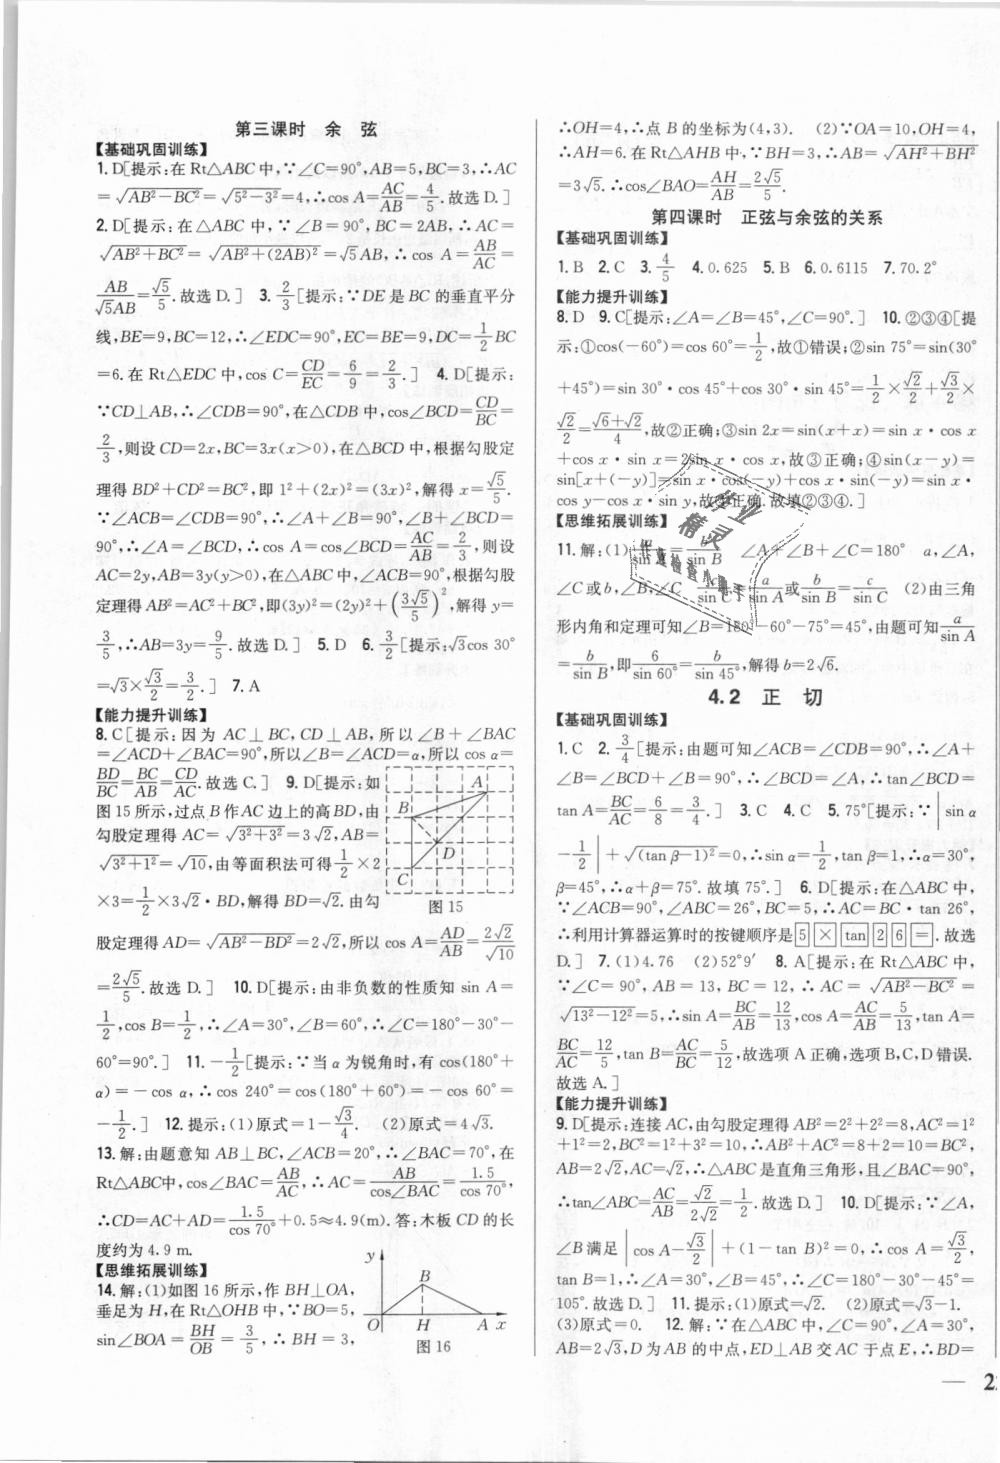 第三课时 余 弦
【基础巩固训练】
1. D[提示:在 Rt△ABC 中,∵∠C=90°,AB=5,BC=3,∴AC
=√(AB²-BC²)=√(5²-3²)=4,∴cos A=AC/AB=4/5.故选 D.]
2. D[提示:在△ABC 中,∵∠B=90°,BC=2AB,∴AC=
√(AB²+BC²)=√(AB²+(2AB)²)=√5AB,∴cos A=AB/AC=
AB/(√5AB)=√5/5.故选 D.] 3. 2/3[提示:∵DE 是 BC 的垂直平分
线,BE=9,BC=12,∴∠EDC=90°,EC=BE=9,DC=1/2BC
=6.在 Rt△EDC 中,cos C=CD/EC=6/9=2/3.] 4. D[提示:
∵CD⊥AB,∴∠CDB=90°,在△CDB 中,cos∠BCD=CD/BC=
2/3,则设 CD=2x,BC=3x(x>0),在△BCD 中,根据勾股定
理得 BD²+CD²=BC²,即 1²+(2x)²=(3x)²,解得 x=√5/5.
∵∠ACB=∠CDB=90°,∴∠A+∠B=90°,∠B+∠BCD=
90°,∴∠A=∠BCD,∴cos A=cos∠BCD=AC/AB=2/3,则设
AC=2y,AB=3y(y>0),在△ACB 中,∠ACB=90°,根据勾股
定理得 AB²=AC²+BC²,即(3y)²=(2y)²+(3√5/5)²,解得 y=
3/5,∴AB=3y=9/5.故选 D.] 5. D 6. 3/2[提示:√3cos 30°
=√3×√3/2=3/2.] 7. A
【能力提升训练】
8. C[提示:因为 AC⊥BC,CD⊥AB,所以∠B+∠BAC
=∠ACD+∠BAC=90°,所以∠B=∠ACD=α,所以 cos α=
BD/BC=BC/AB=CD/AC.故选 C.] 9. D[提示:如
图 15 所示,过点 B 作 AC 边上的高 BD,由
勾股定理得 AC=√(3²+3²)=3√2,AB=
√(3²+1²)=√10,由等面积法可得1/2×2
×3=1/2×3√2·BD,解得 BD=√2.由勾
A
B
D
C
图 15
股定理得 AD=√(AB²-BD²)=2√2,所以 cos A=AD/AB=2√2/√10
=2√5/5.故选 D.] 10. D[提示:由非负数的性质知 sin A=
1/2,cos B=1/2,∴∠A=30°,∠B=60°,∴∠C=180°-30°-
60°=90°.] 11. -1/2[提示:∵当 α 为锐角时,有 cos(180°+
α)=-cos α,∴cos 240°=cos(180°+60°)=-cos 60°=
-1/2.] 12. 提示:(1)原式=1-√3/4. (2)原式=4√3.
13. 解:由题意知 AB⊥BC,∠ACB=20°,∴∠BAC=70°,在
Rt△ABC中,cos∠BAC=AB/AC,∴AC=AB/cos∠BAC=1.5/cos 70°,
∴CD=AC+AD=1.5/cos 70°+0.5≈4.9(m).答:木板 CD 的长
度约为 4.9 m.
【思维拓展训练】
14. 解:(1)如图 16 所示,作 BH⊥OA,
垂足为 H,在 Rt△OHB 中,∵BO=5,
sin∠BOA=BH/OB=3/5,∴BH=3,
y
B
O H A x
图 16
∴OH=4,∴点 B 的坐标为(4,3). (2)∵OA=10,OH=4,
∴AH=6.在 Rt△AHB 中,∵BH=3,∴AB=√(AH²+BH²)
=3√5.∴cos∠BAO=AH/AB=2√5/5.
第四课时 正弦与余弦的关系
【基础巩固训练】
1. B 2. C 3. 4/5 4. 0.625 5. B 6. 0.6115 7. 70.2°
【能力提升训练】
8. D 9. C[提示:∠A=∠B=45°,∠C=90°.] 10. ②③④[提
示:①cos(-60°)=cos 60°=1/2,故①错误;②sin 75°=sin(30°
+45°)=sin 30°·cos 45°+cos 30°·sin 45°=1/2×√2/2+√3/2×
√2/2=(√6+√2)/4,故②正确;③sin 2x=sin(x+x)=sin x·cos x
+cos x·sin x=2sin x·cos x,故③正确;④sin(x-y)=
sin[x+(-y)]=sin x·cos(-y)+cos x·sin(-y)=sin x·
cos y-cos x·sin y,故④正确.故填②③④.]
【思维拓展训练】
11. 解:(1) = b/sin B ∠A+∠B+∠C=180° a,∠A,
∠C 或 b,∠B,∠C sin C a/sin A或b/sin B=c/sin C (2)由三角
形内角和定理可知∠B=180°-60°-75°=45°,由题可知a/sin A
=b/sin B,即6/sin 60°=b/sin 45°,解得 b=2√6.
作业
精灵
作业检查小助手
4.2 正 切
【基础巩固训练】
1. C 2. 3/4[提示:由题可知∠ACB=∠CDB=90°,∴∠A+
∠B=∠BCD+∠B=90°,∴∠BCD=∠A,∴tan∠BCD=
tan A=BC/AC=6/8=3/4.] 3. C 4. C 5. 75°[提示:∵|sin α
-1/2|+√((tan β-1)²)=0,∴sin α=1/2,tan β=1,∴α=30°,
β=45°,∴α+β=75°.故填 75°.] 6. D[提示:在△ABC 中,
∵∠ACB=90°,∠ABC=26°,BC=5,∴AC=BC·tan 26°,
∴利用计算器运算时的按键顺序是[5][×][tan][2][6][=].故选
D.] 7. (1)4.76 (2)52°9′ 8. A[提示:在 Rt△ABC 中,
∵∠C=90°,AB=13,BC=12,∴AC=√(AB²-BC²)=
√(13²-12²)=5,∴sin A=BC/AB=12/13,cos A=AC/AB=5/13,tan A=
BC/AC=12/5,tan B=AC/BC=5/12,故选项 A 正确,选项 B,C,D 错误.
故选 A.]
【能力提升训练】
9. D[提示:连接 AC,由勾股定理得 AB²=2²+2²=8,AC²=1²
+1²=2,BC²=1²+3²=10,∴AB²+AC²=8+2=10=BC²,
AB=2√2,AC=√2,∴△ABC 是直角三角形,且∠BAC=90°,
∴tan∠ABC=AC/AB=√2/(2√2)=1/2.故选 D.] 10. D[提示:∵∠A,
∠B 满足|cos A-√3/2|+(1-tan B)²=0,∴cos A=√3/2,
tan B=1,∴∠A=30°,∠B=45°,∴∠C=180°-30°-45°=
105°.故选 D.] 11. 提示:(1)原式=√2. (2)原式=√3-1.
(3)原式=0. 12. 解:∵在△ABC 中,∠C=90°,∠A=30°,
AB=2√3,D 为 AB 的中点,ED⊥AB 交 AC 于点 E,∴BD=